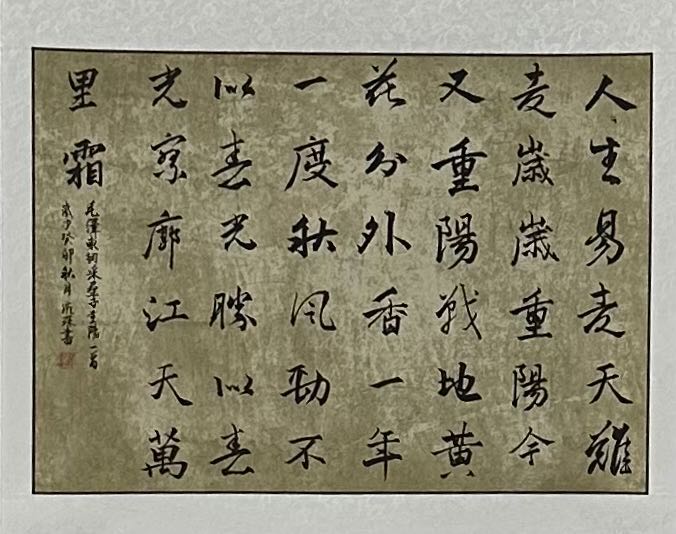 人生易老天難
老歲歲重陽今
又重陽戰地黃
花分外香一年
一度秋風勁不
似春光勝似春
光寥廓江天萬
里霜
毛澤東詞采桑子重陽一首
歲次癸卯秋月 書